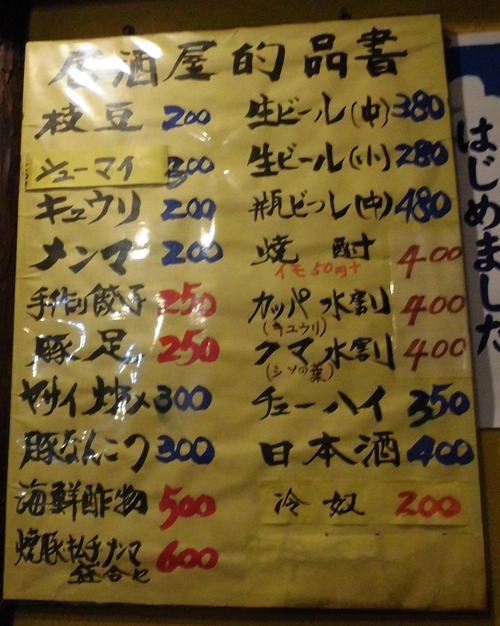 居酒屋的品書
枝豆 200
シューマイ 300
キュウリ 200
メンマ 200
手作り餃子 250
豚足 250
ヤサイ炒メ 300
豚なんこつ 300
海鮮酢物 500
焼豚 キムチ メンマ 600
盛合せ
生ビール(中) 380
生ビール(小) 280
瓶ビール(中) 480
焼酎 400
イモ50円+
カッパ水割 400
(キュウリ)
クマ水割 400
(シソの葉)
チューハイ 350
日本酒 400
冷奴 200
はじめました